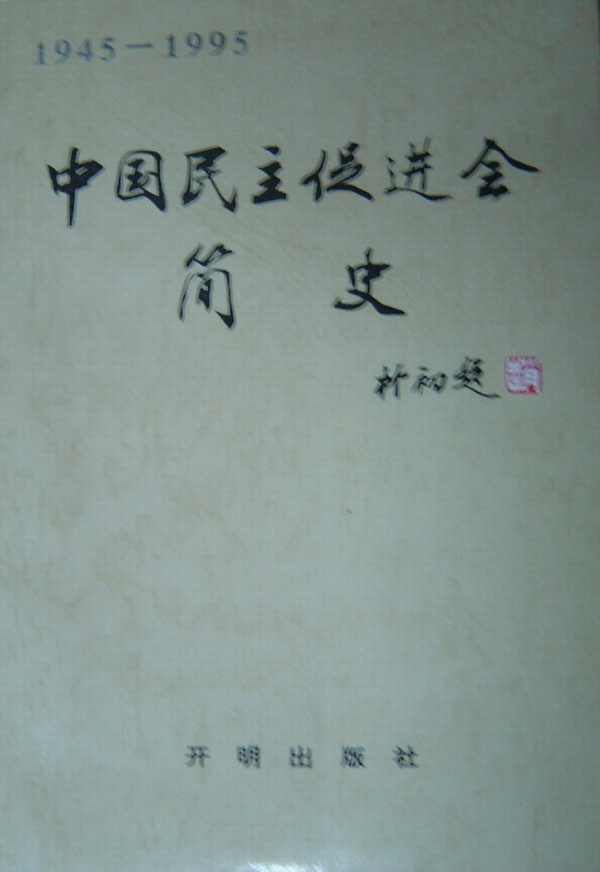 1945－1995
中国民主促进会
简史
朴初题
开明出版社